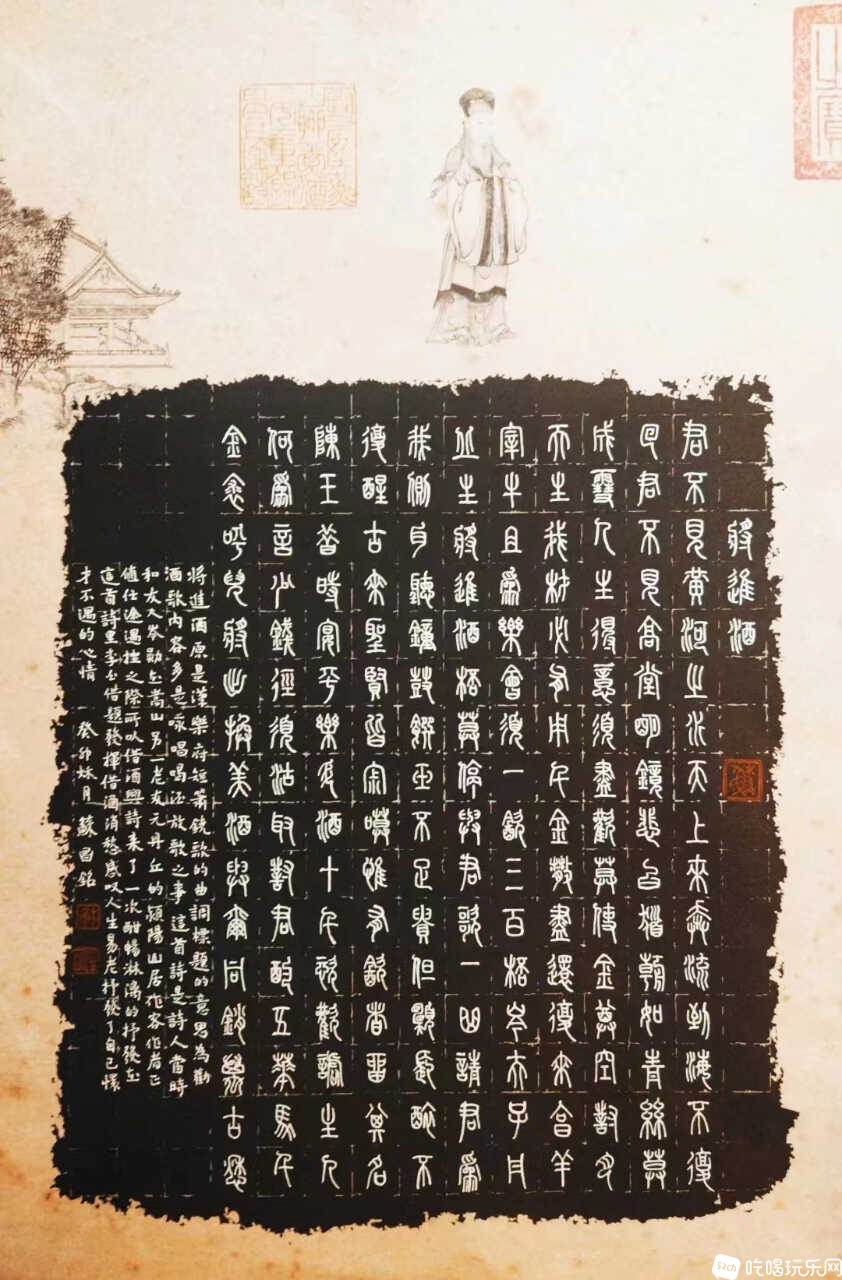 將進酒
君不見黃河之水天上來奔流到海不復
回君不見高堂明鏡悲白髮朝如青絲莫
成雪人生得意須盡歡莫使金尊空對月
天生我材必有用千金散盡還復來烹羊
宰牛且為樂會須一飲三百杯岑夫子丹
丘生將進酒杯莫停與君歌一曲請君為
我側耳聽鐘鼓饌玉不足貴但願長醉不
復醒古來聖賢皆寂寞惟有飲者留其名
陳王昔時宴平樂斗酒十千恣歡謔主人
何為言少錢徑須沽取對君酌五華馬千
金裘呼兒將出換美酒與爾同銷萬古愁
將進酒原是漢樂府短簫鐃歌的曲調標題的意思為勸
酒歌內容多是詠唱喝酒放歌之事這首詩是詩人當時
和友人岑勛在嵩山另一老友元丹丘的潁陽山居作客作者正
值仕途遇挫之際所以借酒興詩來了一次酣暢淋漓的抒發在
這首詩里李白借題發揮借酒消愁感嘆人生易老抒發了自己懷
才不遇的心情 癸卯秋月 蘇昌銘
吃喝玩乐网